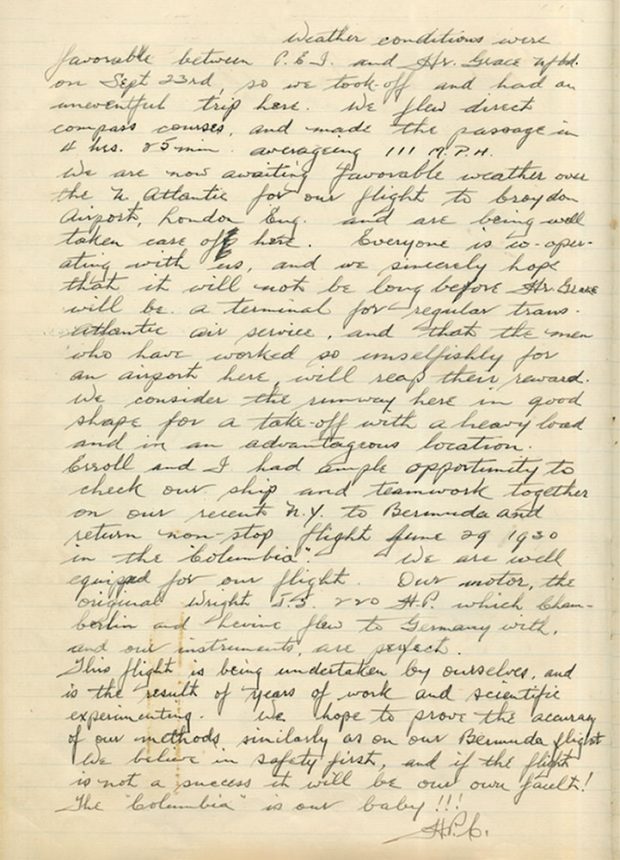 Weather conditions were
favorable between P.E.I. and Hr. Grace Nfld.
on Sept 23rd so we took-off and had an
uneventful trip here. We flew direct
compass courses, and made the passage in
4 hrs. 25 min averageing 111 M.P.H.
We are now awaiting favorable weather over
the N. Atlantic for our flight to Croydon
Airport, London Eng. and are being well
taken care of here. Everyone is co-oper-
ating with us, and we sincerely hope
that it will not be long before Hr. Grace
will be a terminal for regular trans-
atlantic air service, and that the men
who have worked so unselfishly for
an airport here, will reap their reward.
We consider the runway here in good
shape for a take-off with a heavy load
and in an advantageous location.
Erroll and I had ample opportunity to
check our ship and teamwork together
on our recent N.Y. to Bermuda and
return non-stop flight June 29 1930
in the "Columbia". We are well
equipped for our flight. Our motor, the
original Wright J.5. 220 H.P. which Cham-
berlin and Levine flew to Germany with,
and our instruments, are perfect.
This flight is being undertaken by ourselves, and
is the result of years of work and scientific
experimenting. We hope to prove the accuracy
of our methods similarly as on our Bermuda flight
We believe in safety first, and if the flight
is not a success it will be our own fault!
The "Columbia" is our baby!!!
H.P.C.